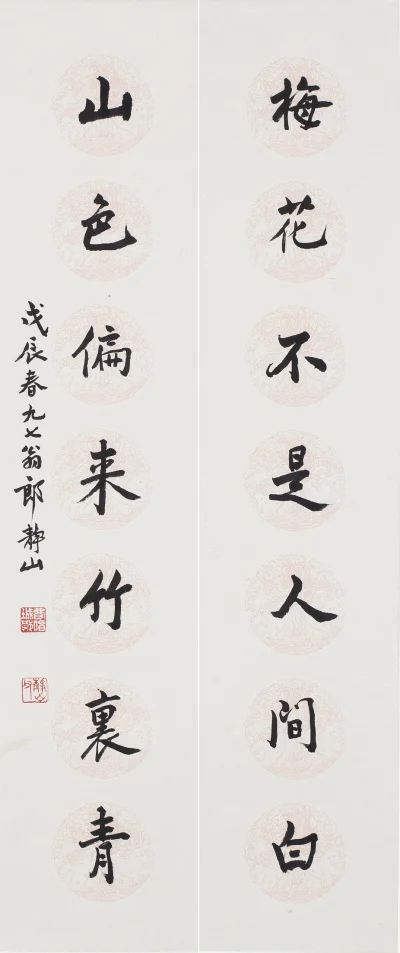 梅花不是人間白
山色偏来竹裏青
戊辰春九七翁郎静山